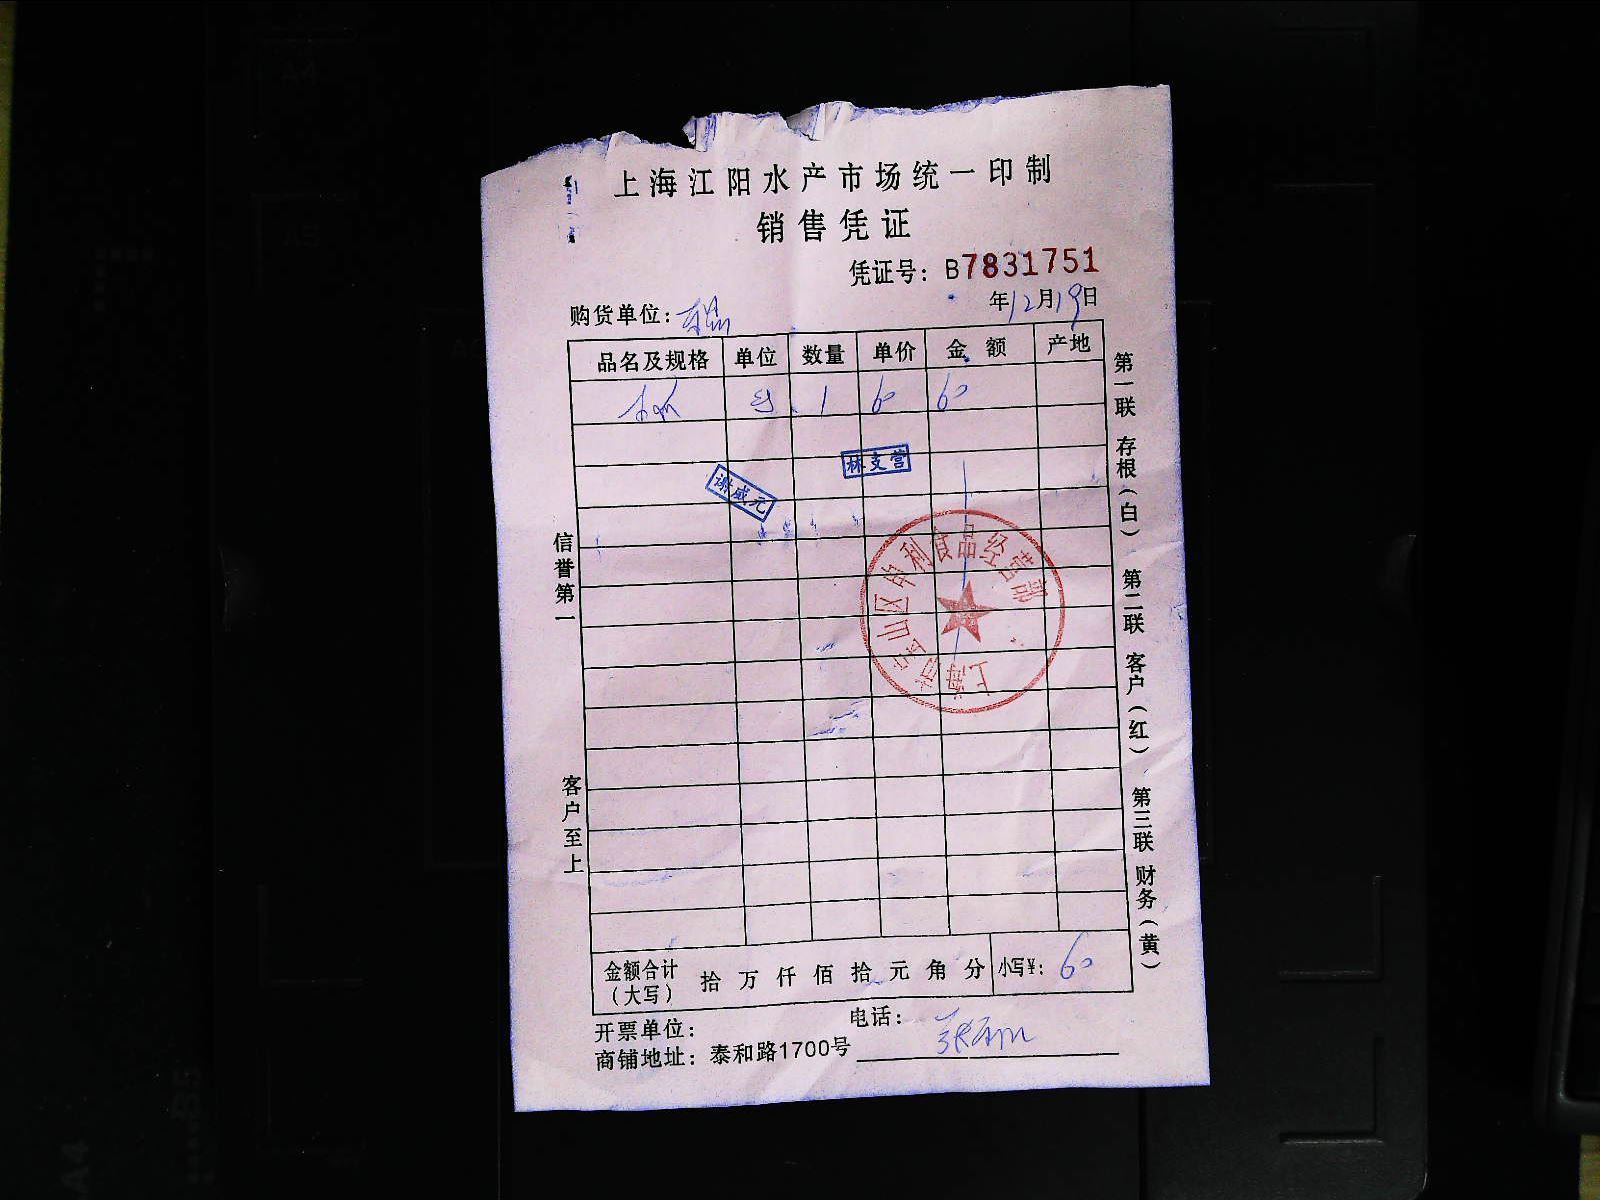 上海江阳水产市场统一印制
销售凭证
凭证号：B7831751
购货单位：
年12月19日
品名及规格 单位 数量 单价 金额 产地
1 60 60
林支营
谢咸元
上海市宝山区卓利食品经营部
信誉第一
客户至上
第一联 存根（白） 第二联 客户（红） 第三联 财务（黄）
金额合计（大写） 拾 万 仟 佰 拾 元 角 分 小写¥：60
开票单位： 电话：
商铺地址：泰和路1700号